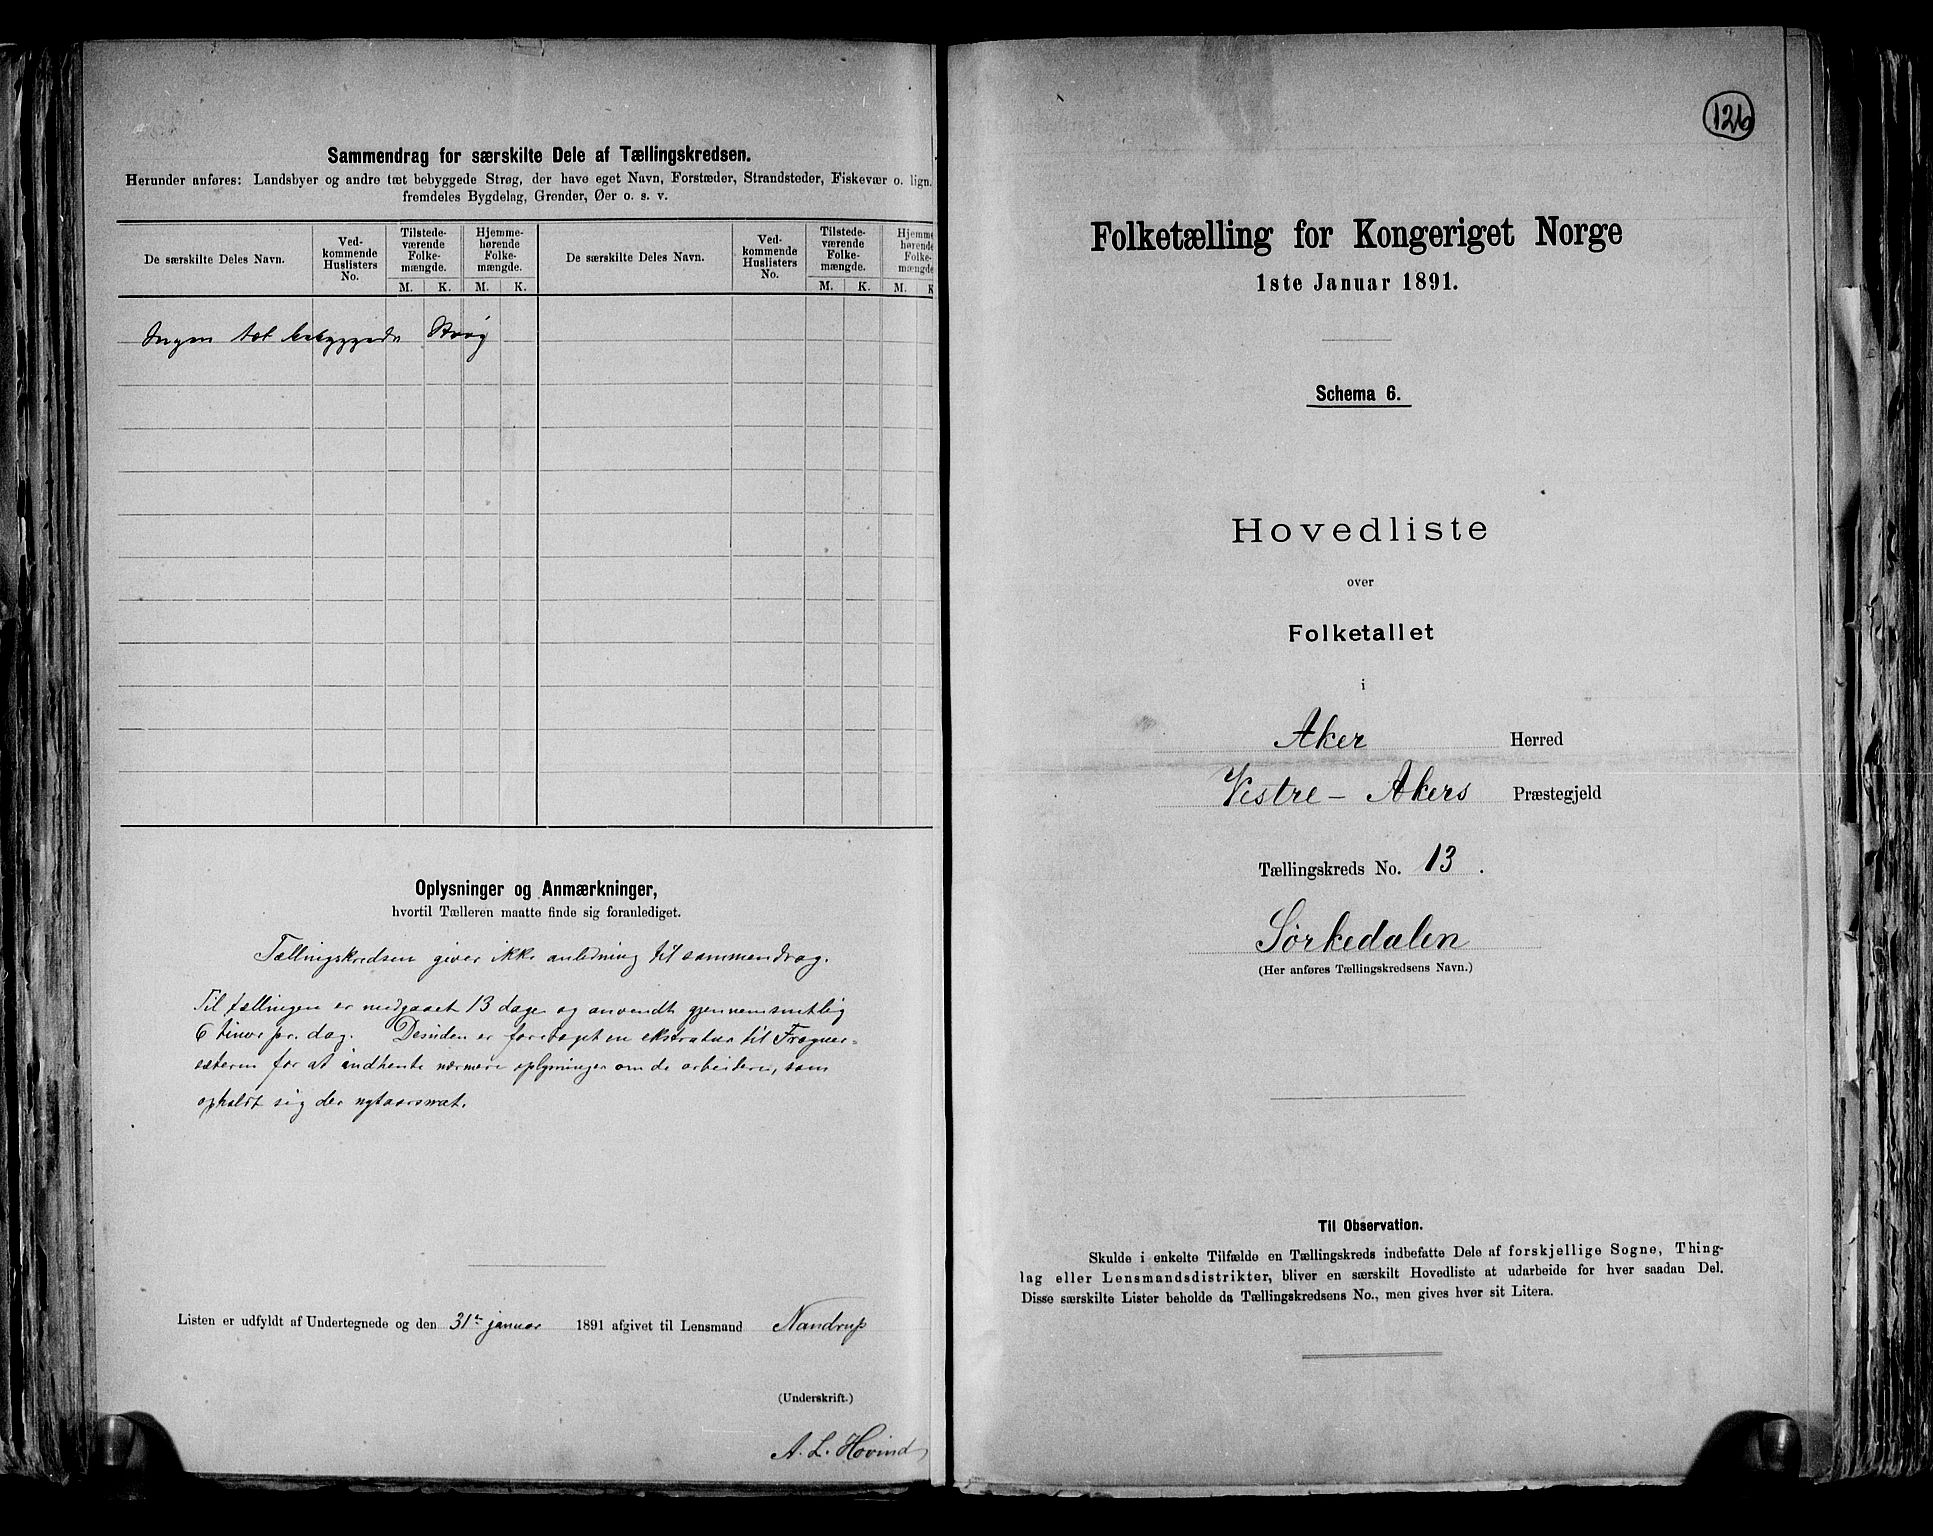 Sammendrag for særskilte Dele af Tællingskredsen.
Herunder anføres: Landsbyer og andre tæt bebyggede Strøg, der have eget Navn, Forstæder, Strandsteder, Fiskevær o. lign.
fremdeles Bygdelag, Grender, Øer o. s. v.
De særskilte Deles Navn.
Ved-
kommende
Huslisters
No.
Tilstede-
værende
Folke-
mængde.
M. K.
Hjemme-
hørende
Folke-
mængde.
M. K.
De særskilte Deles Navn.
Ved-
kommende
Huslisters
No.
Tilstede-
værende
Folke-
mængde.
M. K.
Hjemme
hørende
Folke-
mængde
M. K
Ingen tæt bebyggede Strøg
Oplysninger og Anmærkninger,
hvortil Tælleren maatte finde sig foranlediget.
Tællingskredsen giver ikke anledning til sammendrag.
Til tællingen er medgaaet 13 dage og anvendt gjennemsnitlig
6 timer pr. dag. Desuden er foretaget en ekstratur til Frogner-
sæteren for at indhente nærmere oplysninger om de arbeidere, som
opholdt sig der nytaarsnat.
Listen er udfyldt af Undertegnede og den 31te januar 1891 afgivet til Lensmand Nandrup
(Underskrift.)
A. L. Hovind
126
Folketælling for Kongeriget Norge
1ste Januar 1891.
Schema 6.
Hovedliste
over
Folketallet
i
Aker Herred
Vestre-Akers Præstegjeld
Tællingskreds No. 13.
Sørkedalen
(Her anføres Tællingskredsens Navn.)
Til Observation.
Skulde i enkelte Tilfælde en Tællingskreds indbefatte Dele af forskjellige Sogne, Thing-
lag eller Lensmandsdistrikter, bliver en særskilt Hovedliste at udarbeide for hver saadan Del.
Disse særskilte Lister beholde da Tællingskredsens No., men gives hver sit Litera.